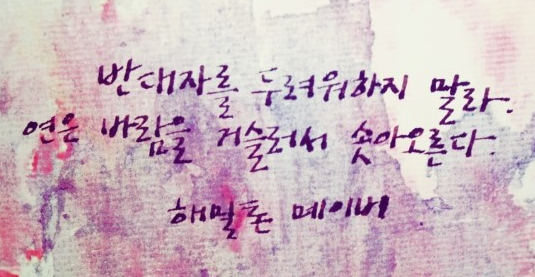 반대자를 두려워하지 말라.
연은 바람을 거슬러서 솟아오른다.
해밀톤 메이버